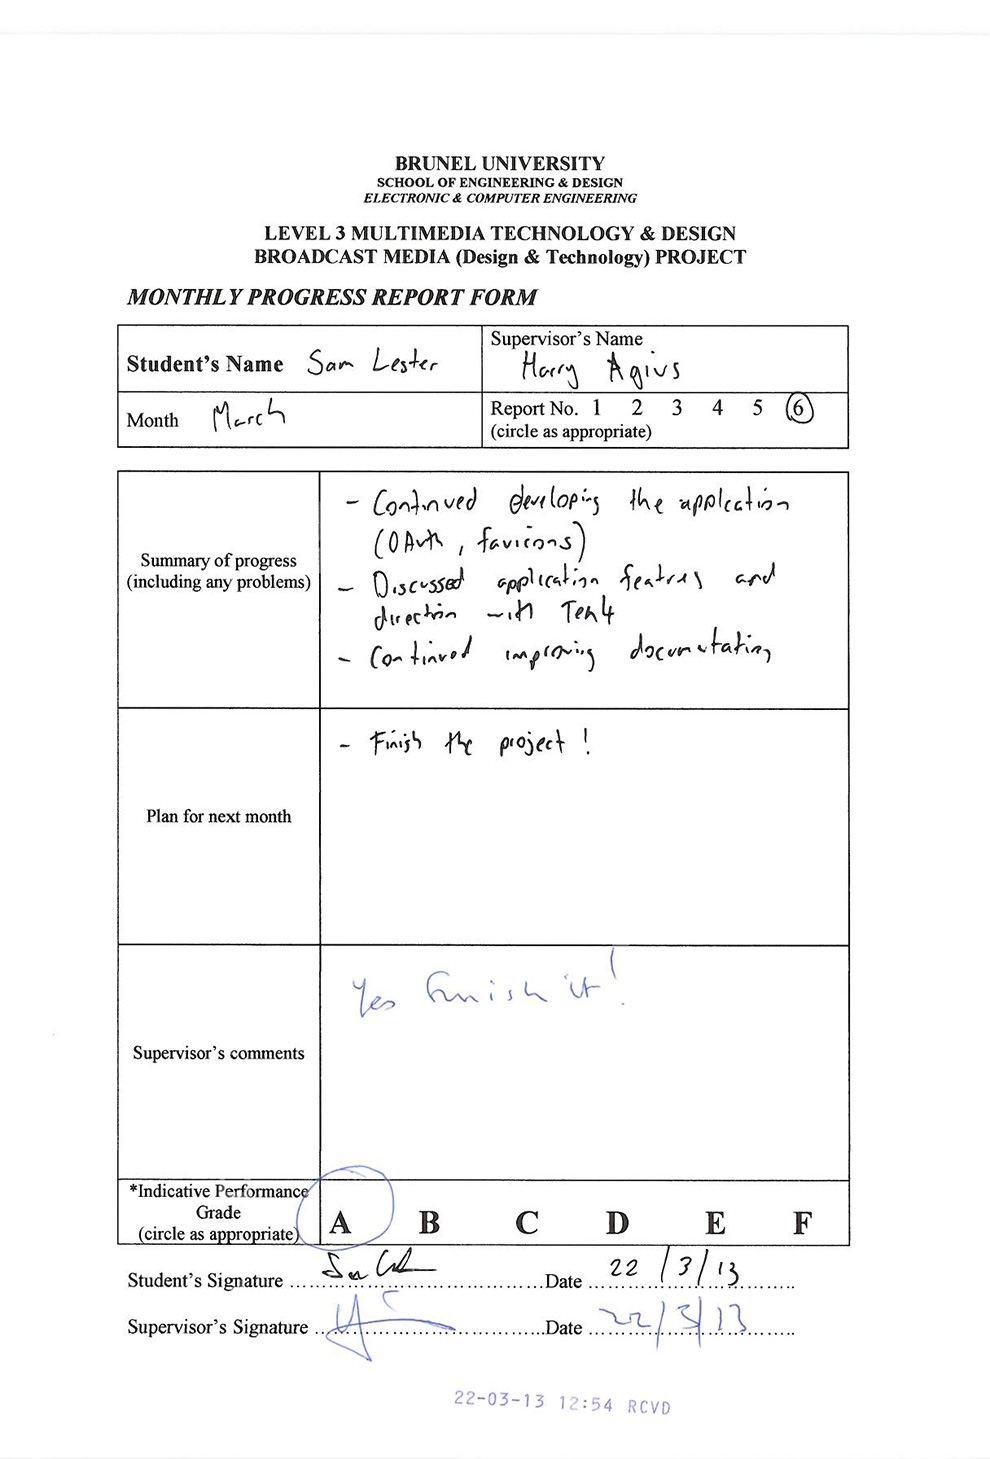 BRUNEL UNIVERSITY
SCHOOL OF ENGINEERING & DESIGN
ELECTRONIC & COMPUTER ENGINEERING
LEVEL 3 MULTIMEDIA TECHNOLOGY & DESIGN
BROADCAST MEDIA (Design & Technology) PROJECT
MONTHLY PROGRESS REPORT FORM
Student's Name Sam Lester
Supervisor's Name
Harry Agius
Month March
Report No. 1 2 3 4 5 6
(circle as appropriate)
Summary of progress
(including any problems)
- Continued developing the application
(OAuth, favicons)
- Discussed application features and
direction with Ten4
- Continued improving documentation
Plan for next month
- Finish the project!
Supervisor's comments
Yes finish it!
*Indicative Performance
Grade
(circle as appropriate)
A B C D E F
Student's Signature Date 22/3/13
Supervisor's Signature Date 22/3/13
22-03-13 12:54 RCVD